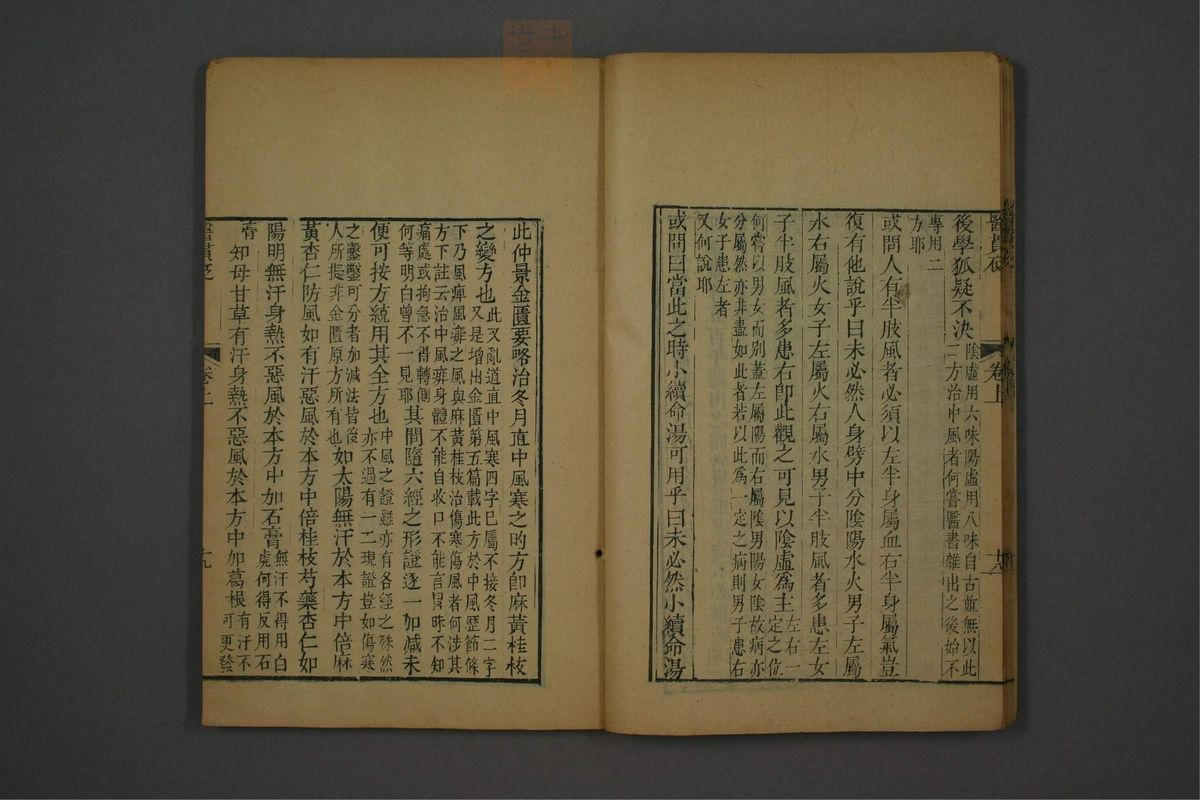 醫貫砭
卷上
十八
後學狐疑不決陰虛用六味陽虛用八味自古並無以此
二方治中風者何嘗醫書雜出之後始不
專用二
方耶
或問人有半肢風者必須以左半身屬血右半身屬氣豈
復有他說乎曰未必然人身劈中分陰陽水火男子左屬
水右屬火女子左屬火右屬水男子半肢風者多患左女
子半肢風者多患右卽此觀之可見以陰虛爲主左右一
定之位
何嘗以男女而別蓋左屬陽而右屬陰男陽女陰故病亦
分屬然亦非盡如此者若以此爲一定之病則男子患右
女子患左者
又何說耶
或問曰當此之時小續命湯可用乎曰未必然小續命湯
此仲景金匱要略治冬月直中風寒之的方卽麻黃桂枝
之變方也此又亂道直中風寒四字已屬不接冬月二字
又是增出金匱第五篇載此方於中風歷節條
下乃風痺風痱之風與麻黃桂枝治傷寒傷風者何涉其
方下註云治中風痱身體不能自收口不能言冒昧不知
痛處或拘急不得轉側
何等明白曾不一見耶其間隨六經之形證逐一加減未
便可按方統用其全方也中風之證雖亦有各經之殊然
亦不過有一二現證豈如傷寒
之鑿鑿可分者加減法皆後
人所揑非金匱原方所有也如太陽無汗於本方中倍麻
黃杏仁防風如有汗惡風於本方中倍桂枝芍藥杏仁如
陽明無汗身熱不惡風於本方中加石膏無汗不得用白
虎何得反用石
膏知母甘草有汗身熱不惡風於本方中加葛根有汗不
可更發
醫貫砭
卷上
十九